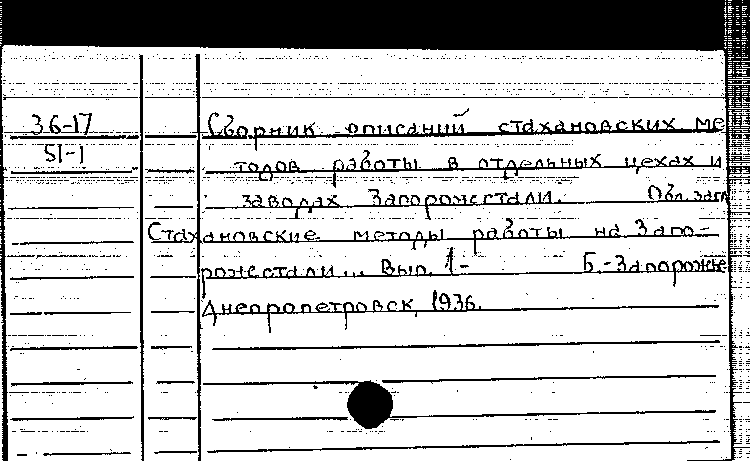 36-17
51-1
Сборник описаний стахановских ме
тодов работы в отдельных цехах и
заводах Запорожстали. Обл. загл
Стахановские методы работы на Запо-
рожстали... Вып. 1- Б.-Запорожье
Днепропетровск, 1936.